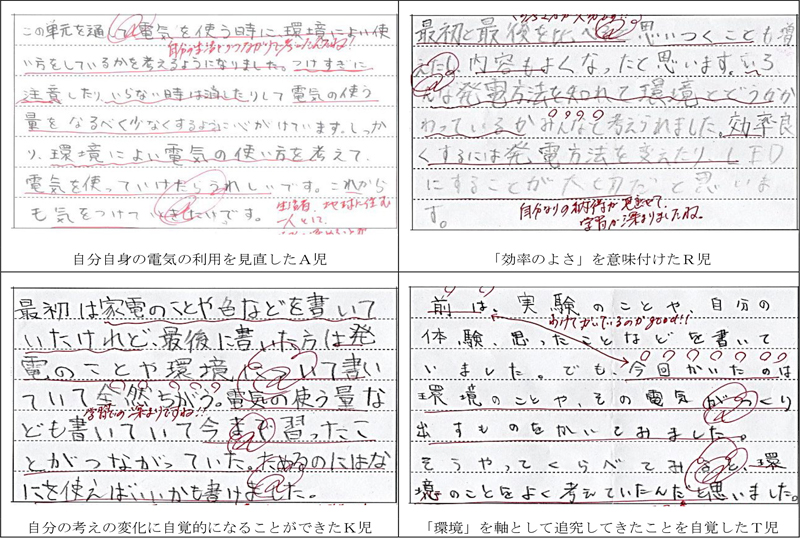 この単元を通して電気を使う時に、環境によい使
自分の生活とつなげて考えたんだね!
い方をしているかを考えるようになりました。つけすぎに
注意したり、いらない時は消したりして電気の使う
量をなるべく少なくするように心がけています。しっか
り、環境によい電気の使い方を考えて、
電気を使っていけたらうれしいです。これから
も気をつけていきたいです。
生活者、地球に住む
人として、
自分自身の電気の利用を見直したA児
最初と最後を比べると思いつくことも増
えたし、内容もよくなったと思います。いろ
んな発電方法を知れて環境とどうかか
わっているかみんなと考えられました。効率良
くするには発電方法を変えたり、LED
にすることが大切だと思いま
す。
自分なりの納得が見えて、
学習が深まりましたね。
「効率のよさ」を意味付けたR児
最初は家電のことや色などを書いて
いたけれど、最後に書いた方は発
電のことや環境について書い
ていて全然ちがう。電気の使う量な
学習の深まりですね!!
ども書いていて今まで習ったこ
とがつながっていた。ためるのにはな
にを使えばいいかも書けました。
自分の考えの変化に自覚的になることができたK児
前は、実験のことや自分の
分けてかいているのがgood!!
体験、思ったことなどを書いて
いました。でも、今回かいたのは
環境のことや、その電気がつくり
出すものをかいてみました。
そうやってくらべてみると、環
境のことをよく考えていたんだと思いました。
「環境」を軸として追究してきたことを自覚したT児